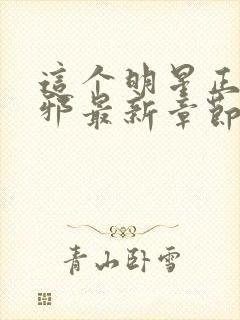 這个明星正
邪最新章節
青山卧雪